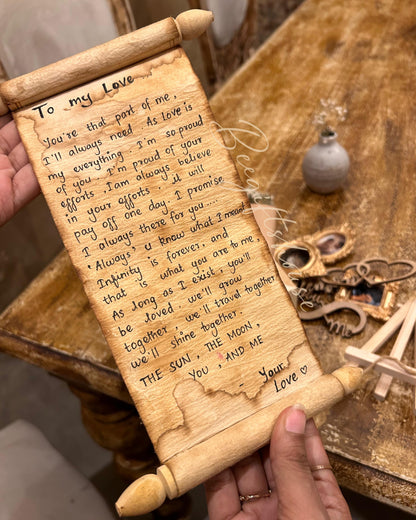 To my Love
You're that part of me,
I'll always need. As Love is
my everything. I'm so proud
of you. I'm proud of your
efforts. I am always believe
in your efforts, it will
pay off one day. I promise
I always there for you....
Always u know what I mean
Infinity is forever, and
that is what you are to me,
As long as I exist, you'll
be loved, we'll grow
together, we'll travel together
we'll shine together.
THE SUN, THE MOON,
YOU, AND ME
- Your
Love ♡